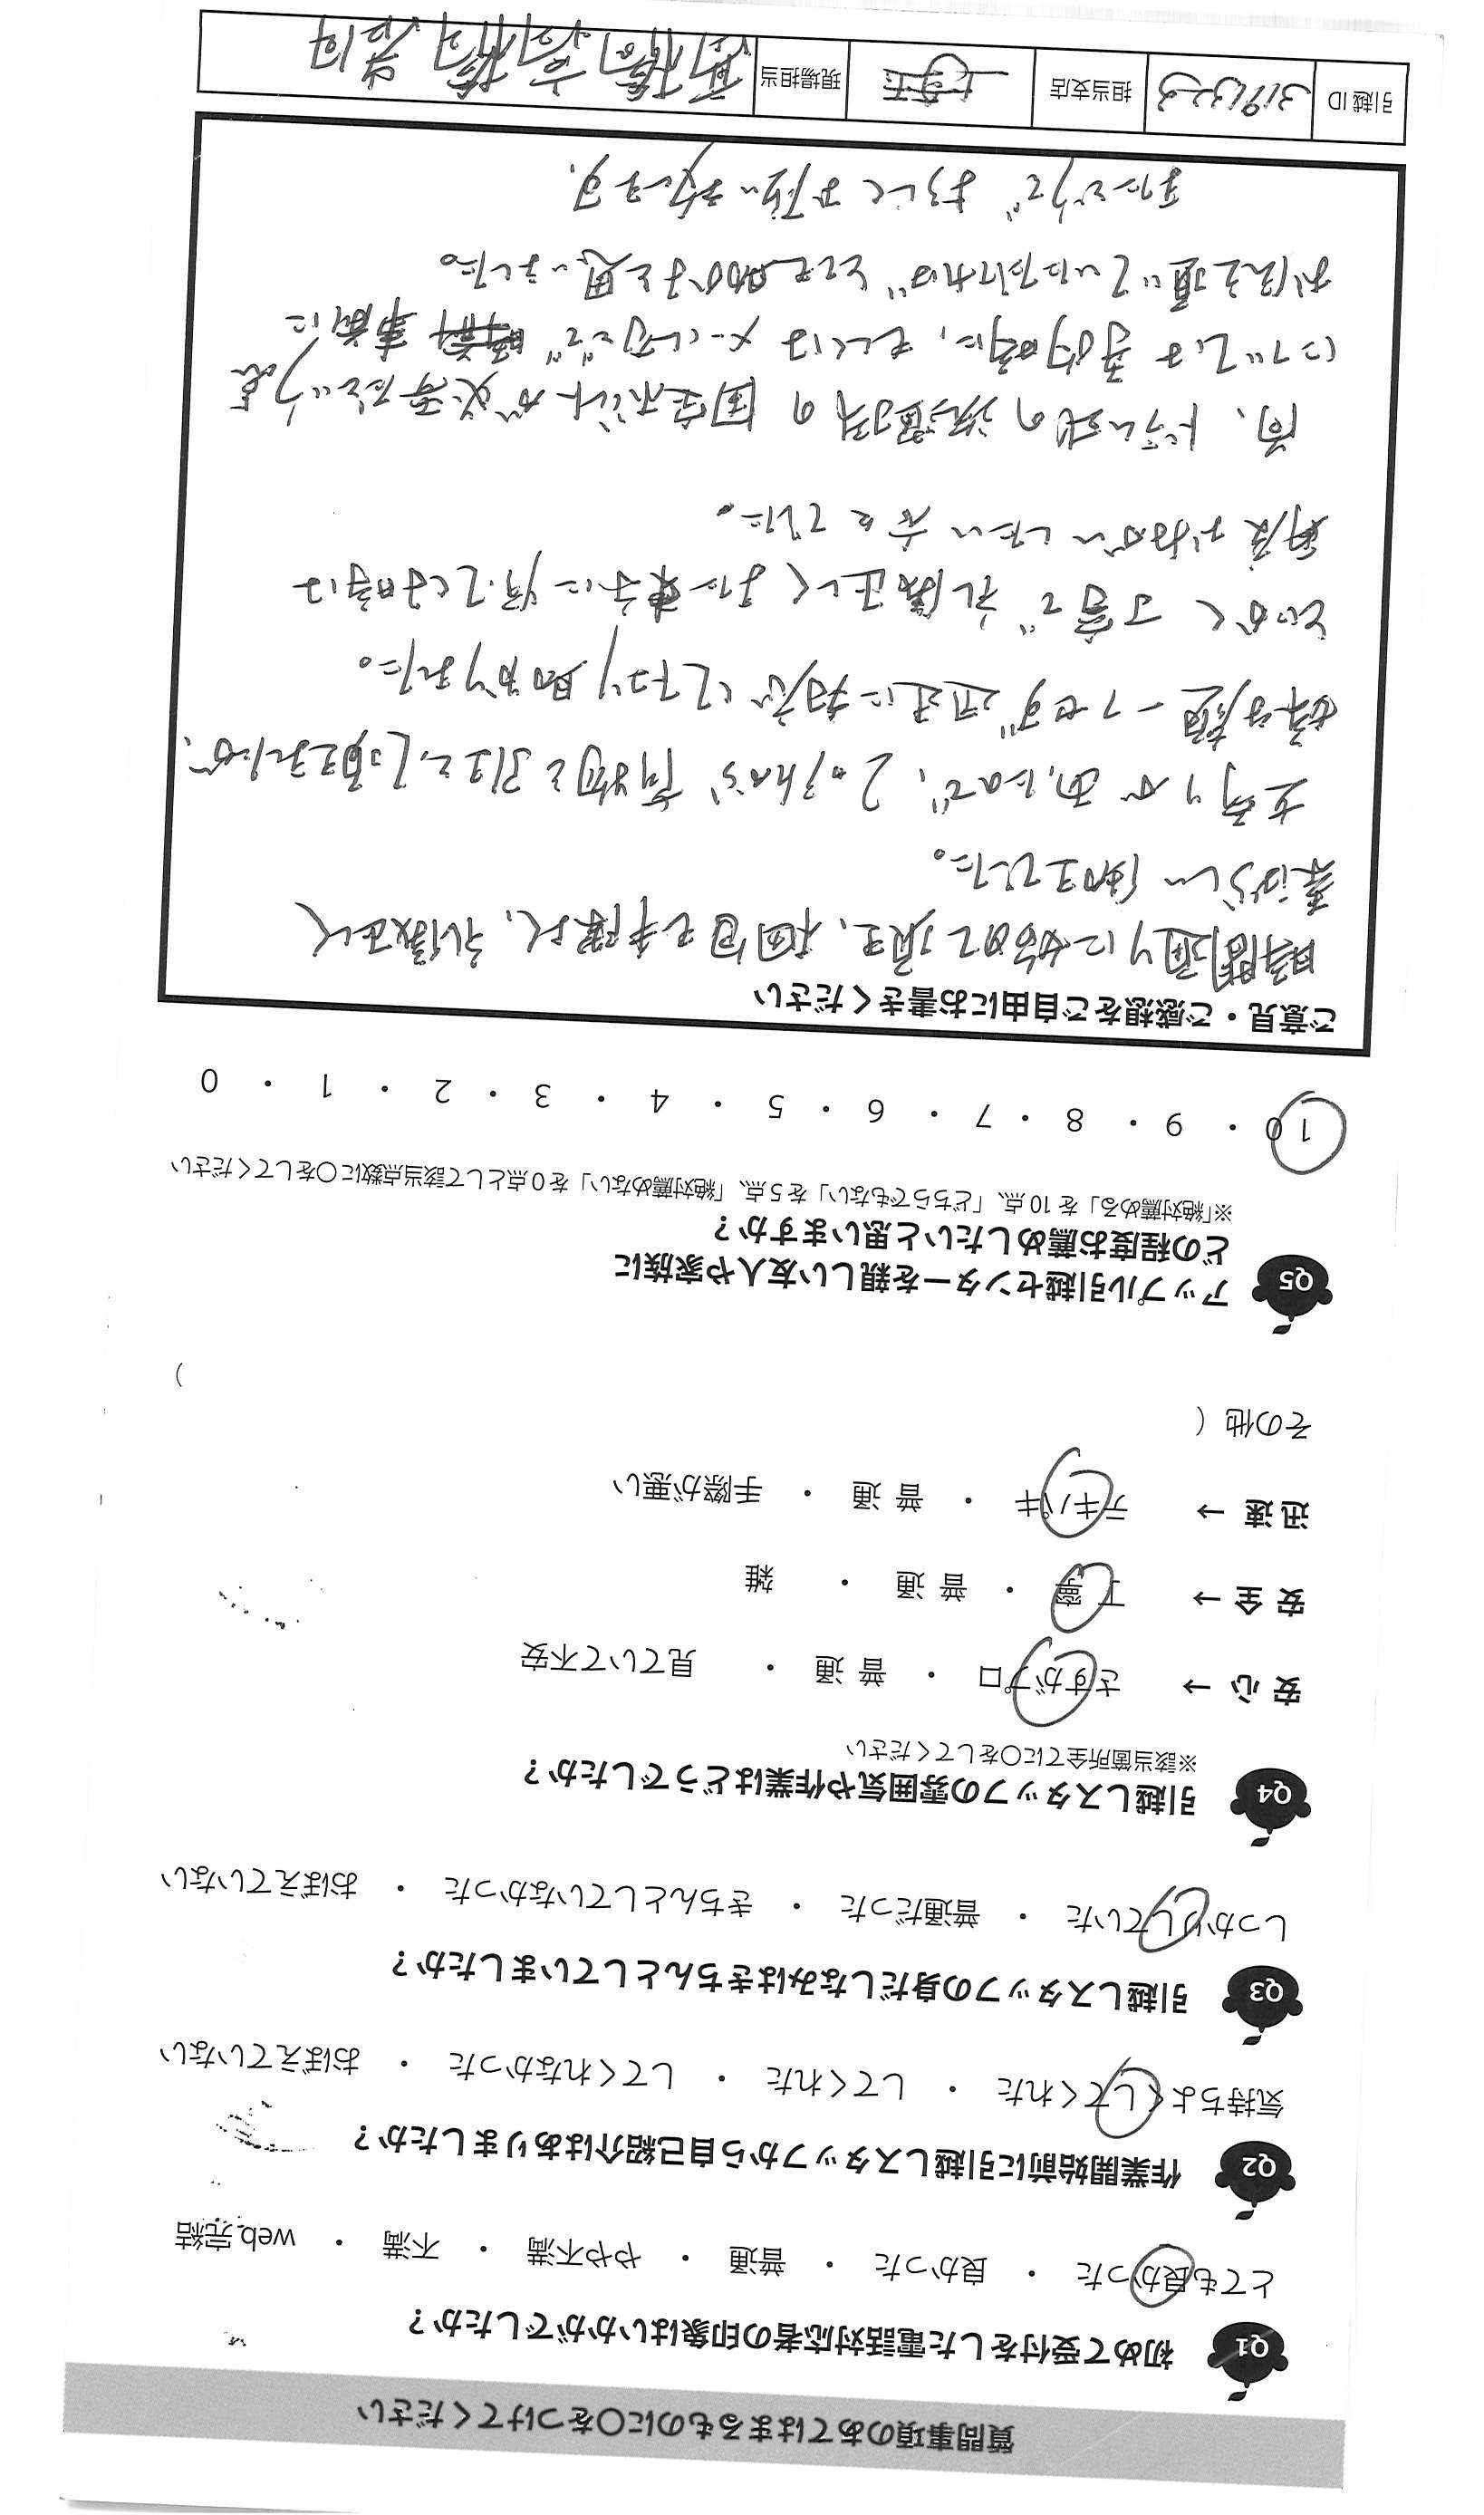 質問事項のあてはまるものに○をつけてください
Q1 初めて受付をした電話対応者の印象はいかがでしたか?
とても良かった ・ 良かった ・ 普通 ・ やや不満 ・ 不満 ・ web完結
Q2 作業開始前に引越しスタッフから自己紹介はありましたか?
気持ちよくしてくれた ・ してくれた ・ してくれなかった ・ おぼえていない
Q3 引越しスタッフの身だしなみはきちんとしていましたか?
しっかりしていた ・ 普通だった ・ きちんとしていなかった ・ おぼえていない
Q4 引越しスタッフの雰囲気や作業はどうでしたか?
※該当箇所全てに○をしてください
安心 → さすがプロ ・ 普通 ・ 見ていて不安
安全 → 丁寧 ・ 普通 ・ 雑
迅速 → テキパキ ・ 普通 ・ 手際が悪い
その他 ( )
Q5 アップル引越センターを親しい友人や家族に
どの程度お薦めしたいと思いますか?
※「絶対薦める」を10点、「どちらでもない」を5点、「絶対薦めない」を0点として該当点数に○をしてください
10 ・ 9 ・ 8 ・ 7 ・ 6 ・ 5 ・ 4 ・ 3 ・ 2 ・ 1 ・ 0
ご意見・ご感想をご自由にお書きください
時間通りに始めて頂き、梱包も手際よく、礼儀正しく
素ばらしい対応でした。
立寄りがあったので、2ヶ所から荷物を引上をして頂きましたが、
嫌な顔一つせず迅速に対応してくれて助かりました。
とにかく丁寧で礼儀正しくまた東京に引越しする時は
再度おねがいしたい方々でした。
尚、ドラム式の洗濯機の固定ボルトが必要だという点
については予約時に、もしくはメール等で事前に
お伝え頂いていただければとても助かると思いました。
またどうぞよろしくお願い致します。
引越ID 3191323 担当支店 現場担当